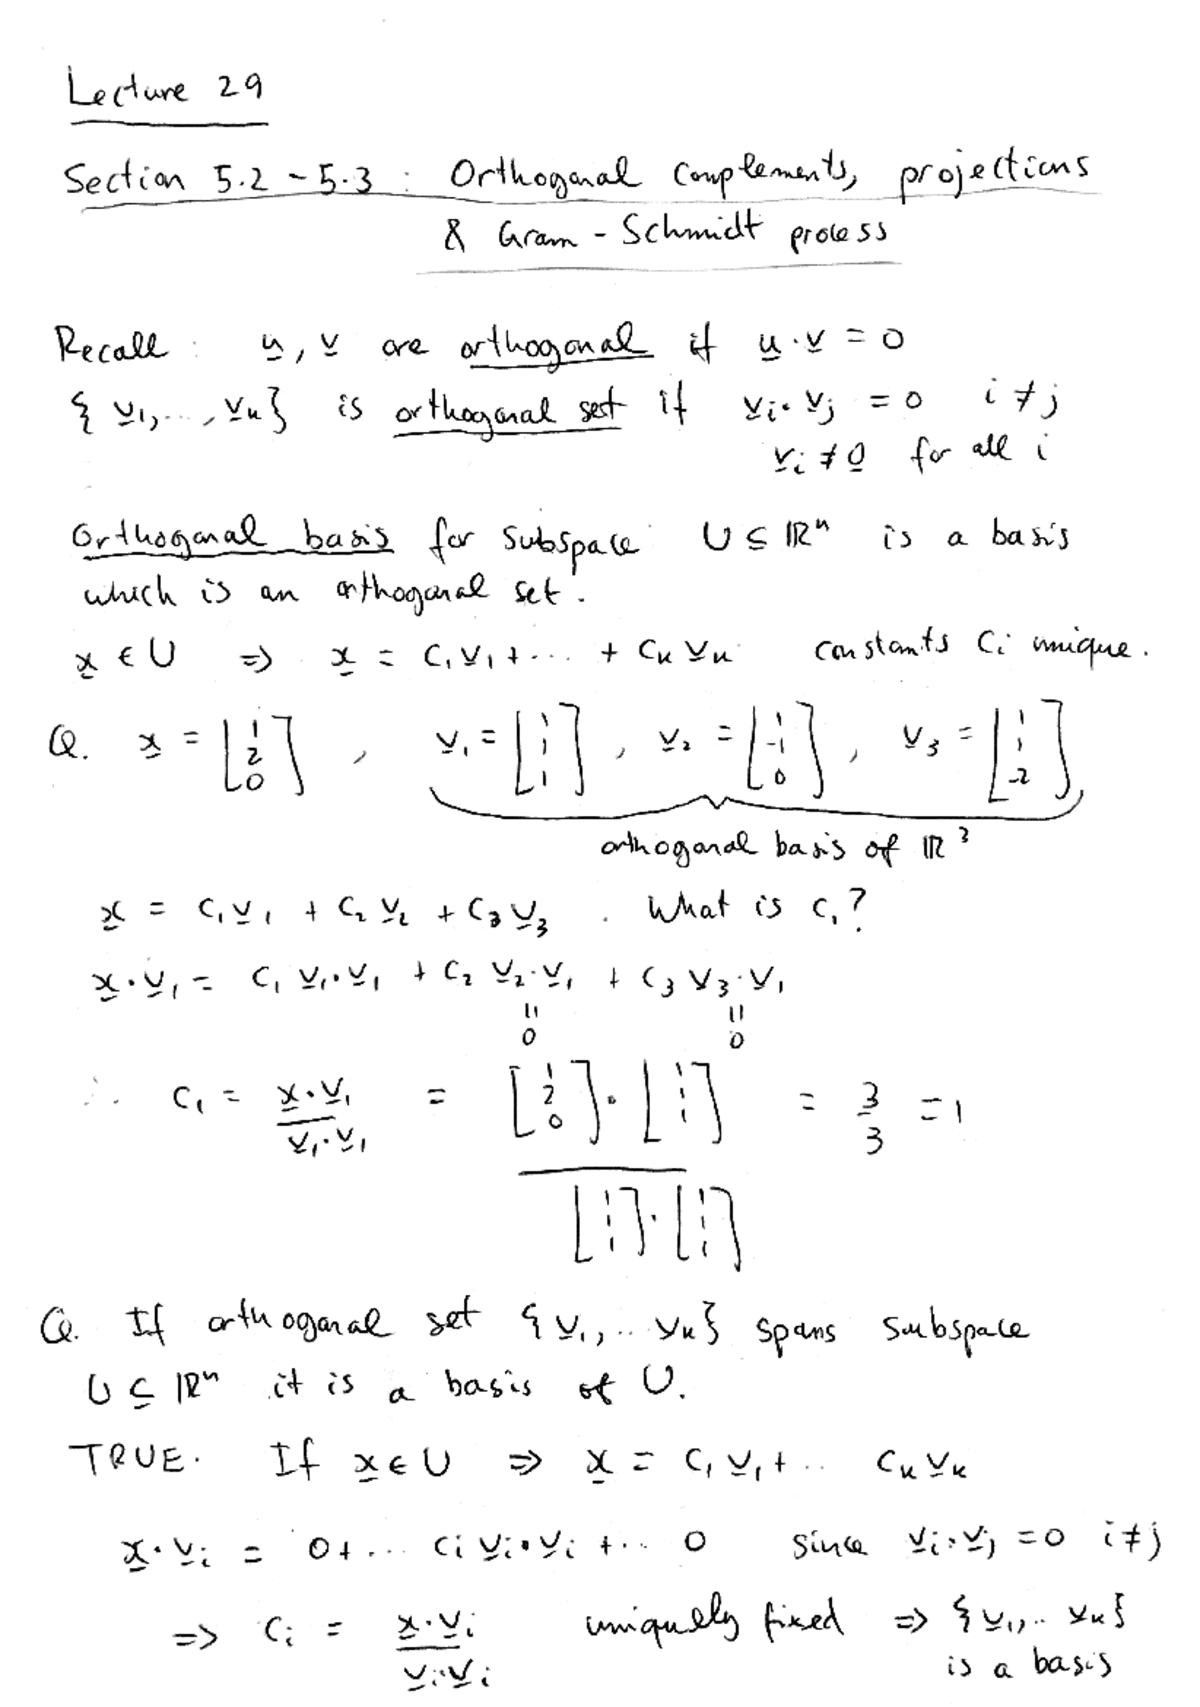 Lecture 29
Section 5.2 - 5.3 : Orthogonal Complements, projections
& Gram - Schmidt process
Recall : u, v are orthogonal if u · v = 0
{ v1, ..., vk } is orthogonal set if vi · vj = 0 i ≠ j
vi ≠ 0 for all i
Orthogonal basis for subspace U ⊆ ℝⁿ is a basis
which is an orthogonal set.
x ∈ U ⇒ x = c1 v1 + ... + ck vk constants ci unique.
Q. x = [1 2 0], v1 = [1 1 1], v2 = [1 -1 0], v3 = [1 1 -2]
orthogonal basis of ℝ³
x = c1 v1 + c2 v2 + c3 v3 . What is c1?
x · v1 = c1 v1 · v1 + c2 v2 · v1 + c3 v3 · v1
= 0 = 0
∴ c1 = x · v1 / v1 · v1 = [1 2 0] · [1 1 1] / [1 1 1] · [1 1 1] = 3/3 = 1
Q. If orthogonal set { v1, .. vk } spans subspace
U ⊆ ℝⁿ it is a basis of U.
TRUE. If x ∈ U ⇒ x = c1 v1 + .. ck vk
x · vi = 0 + ... ci vi · vi + .. 0 since vi · vj = 0 i ≠ j
⇒ ci = x · vi / vi · vi uniquely fixed ⇒ { v1, .. vk }
is a basis